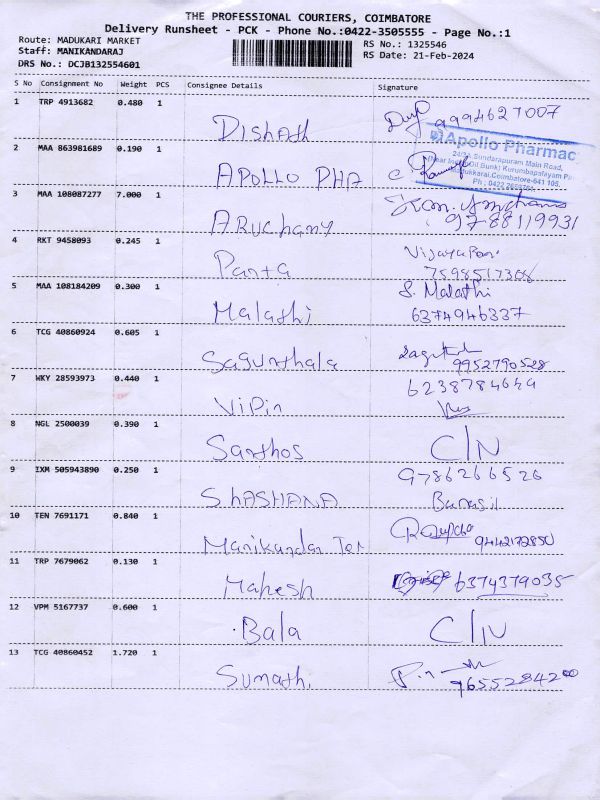 THE PROFESSIONAL COURIERS, COIMBATORE
Delivery Runsheet - PCK - Phone No.:0422-3505555 - Page No.:1
Route: MADUKARI MARKET RS No.: 1325546
Staff: MANIKANDARAJ RS Date: 21-Feb-2024
DRS No.: DCJB132554601
S No Consignment No Weight PCS Consignee Details Signature
1 TRP 4913682 0.480 1 Dishath 9994627007
2 MAA 863981689 0.190 1 APOLLO PHA
Apollo Pharmac
24/32 Sundarapuram Main Road,
(Near Indian Oil Bunk) Kurumbapalayam
Madukkarai, Coimbatore-641 105.
3 MAA 108087277 7.000 1 Aruchamy 9788119931
4 RKT 9458093 0.245 1 7598517308
5 MAA 108184209 0.300 1 Malathi S. Malathi
6374946337
6 TCG 40860924 0.605 1 Sagunthala 9952790528
7 WKY 28593973 0.440 1 Vipin 6238784649
8 NGL 2500039 0.390 1 Santhos C/N
9 IXM 505943890 0.250 1 ShASHANA 9786266526
10 TEN 7691171 0.840 1 Manikandan 9442172850
11 TRP 7679062 0.130 1 Mahesh 6374379035
12 VPM 5167737 0.600 1 Bala C/N
13 TCG 40860452 1.720 1 Sumathi 7655284200